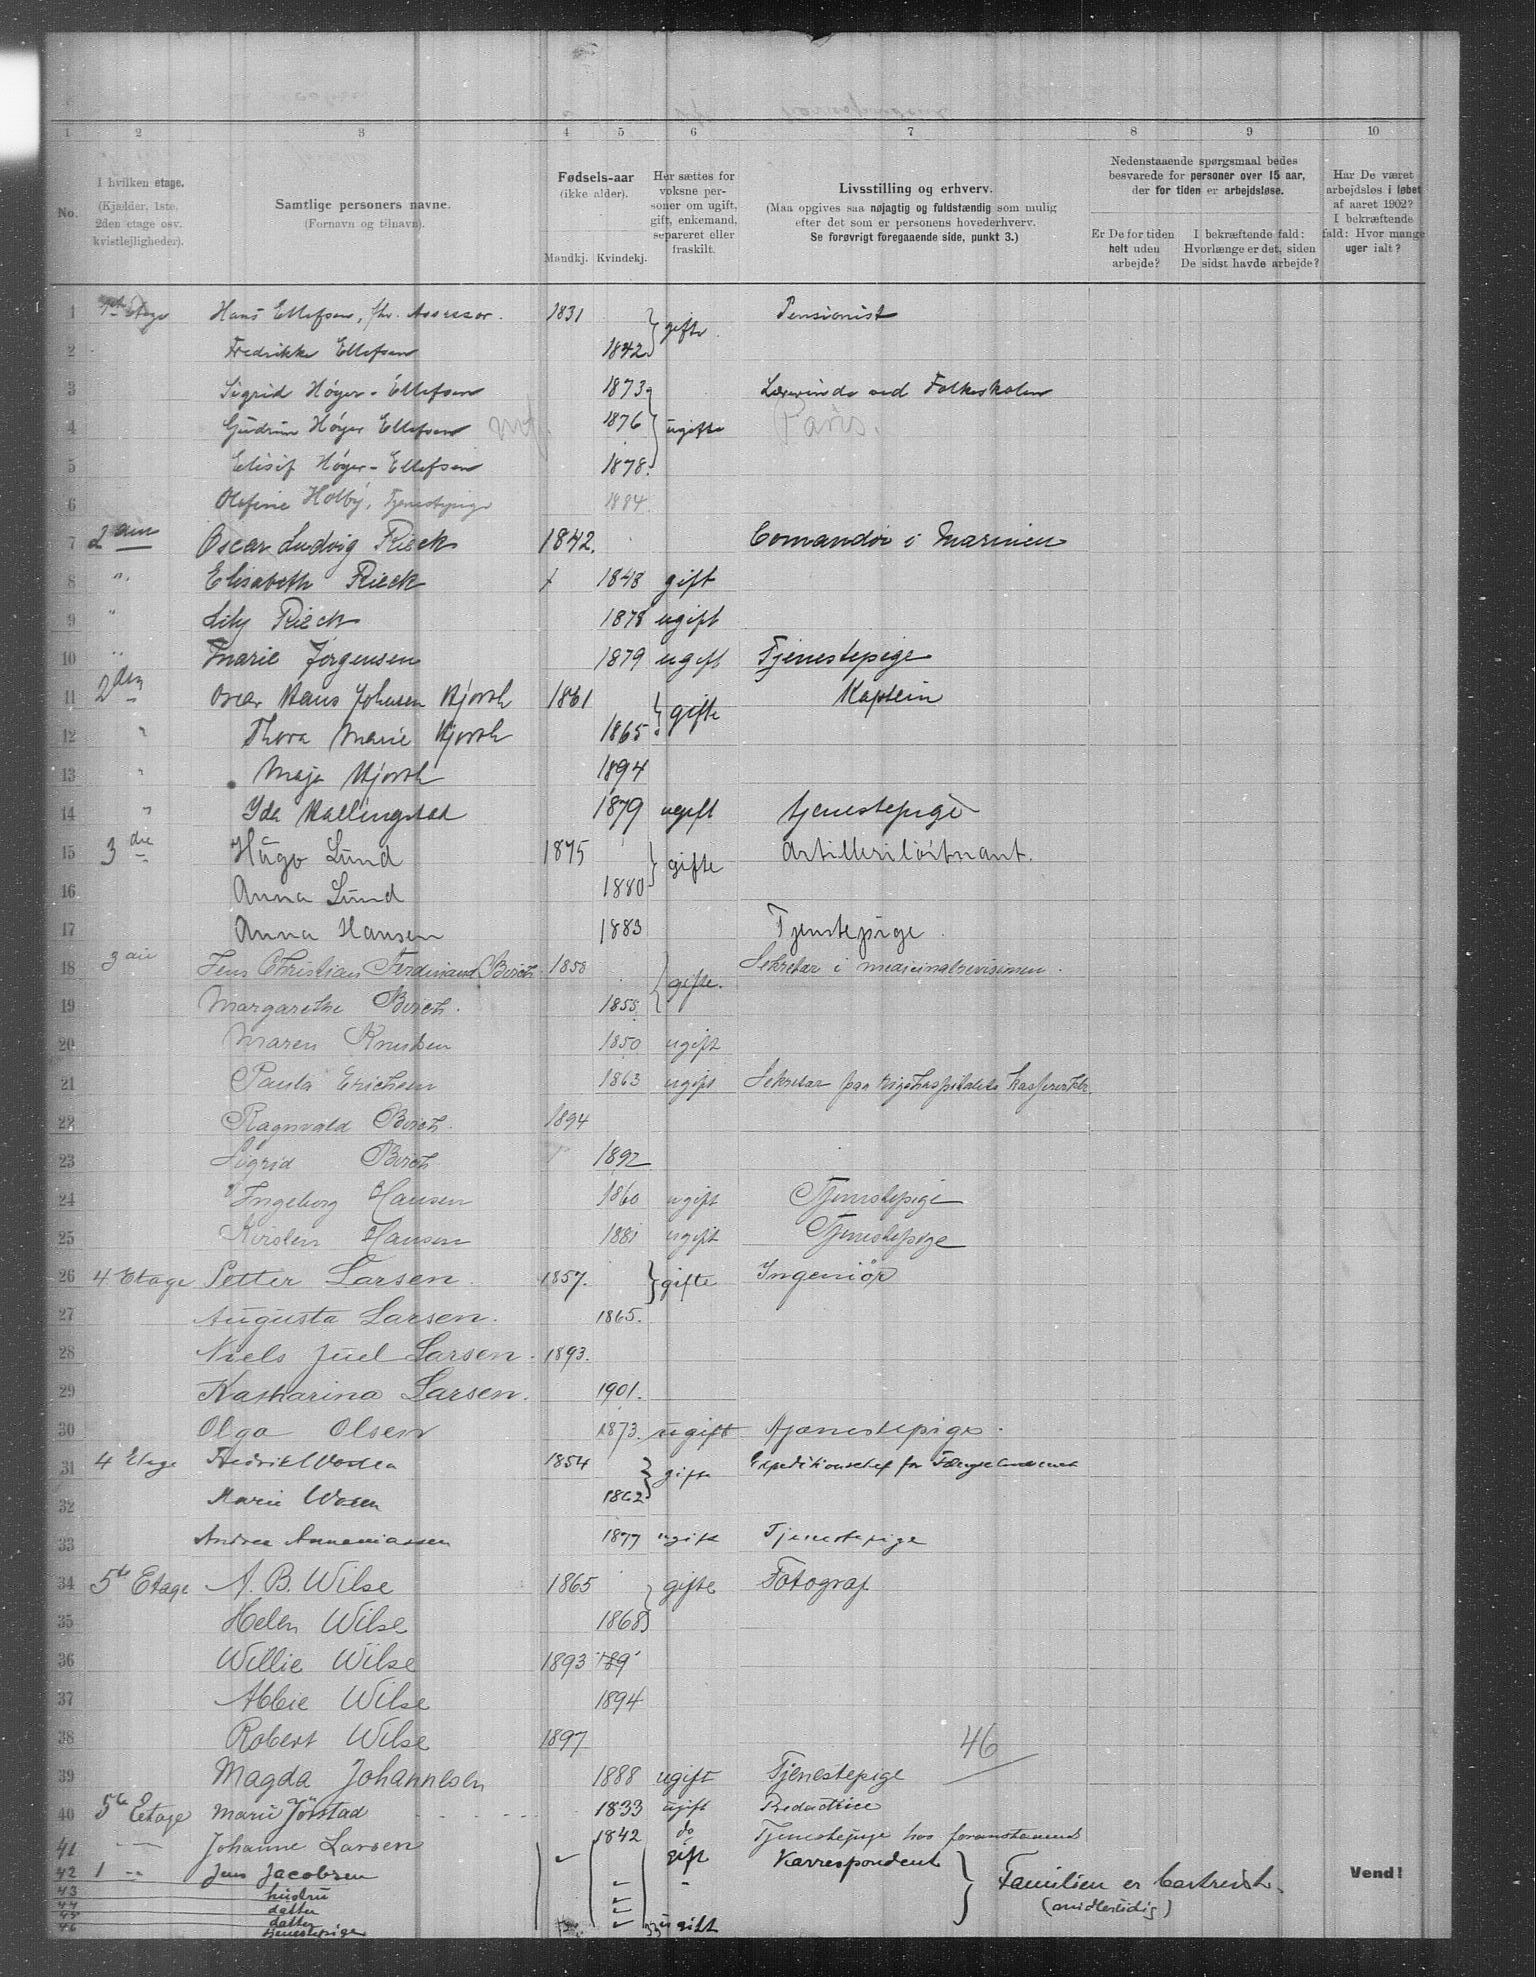 1 2 3 4 5 6 7 8 9 10
No.
I hvilken etage. (Kjælder, 1ste, 2den etage osv. kvistlejligheder).
Samtlige personers navne. (Fornavn og tilnavn).
Fødsels-aar (ikke alder).
Mandkj. Kvindekj.
Her sættes for voksne personer om ugift, gift, enkemand, separeret eller fraskilt.
Livsstilling og erhverv.
(Maa opgives saa nøjagtig og fuldstændig som mulig efter det som er personens hovederhverv. Se forøvrigt foregaaende side, punkt 3.)
Nedenstaaende spørgsmaal bedes besvarede for personer over 15 aar, der for tiden er arbejdsløse.
Er De for tiden helt uden arbejde?
I bekræftende fald: Hvorlænge er det, siden De sidst havde arbejde?
Har De været arbejdsløs i løbet af aaret 1902? I bekræftende fald: Hvor mange uger ialt?
1 Etage Hans Ellefsen, fhv. Assessor. 1831 gifte Pensionist
2 Fredrikke Ellefsen 1842
3 Sigrid Höyer-Ellefsen 1873 Lærerinde ved Folkeskolen
4 Gudrun Höyer Ellefsen 1876 ugifte Paris.
5 Elisif Höyer-Ellefsen 1878.
6 Olefine Holby, Tjenestepige 1884
7 2den Oscar Ludvig Rieck 1842. Comandör i Marinen
8 " Elisabeth Rieck 1848 gift
9 " Lily Rieck 1878 ugift
10 " Marie Jørgensen 1879 ugift Tjenestepige
11 2den Oscar Hans Johnsen Hjorth 1861 gifte Kaptein
12 " Thora Marie Hjorth 1865
13 " Maja Hjorth 1894
14 " Ida Hallingstad 1879 ugift tjenestepige
15 3die Hugo Lund 1875 gifte Artilleriløitnant.
16 Anna Lund 1880
17 Anna Hansen 1883 Tjenstepige.
18 3die Jens Christian Ferdinand Birch 1858 gifte. Sekretær i medicinalrevisionen.
19 Margarethe Birch. 1855
20 Maren Knudsen 1850 ugift
21 Paula Erichsen 1863 ugift Sekretær paa Rigshospitalets
22 Ragnvald Birch. 1894
23 Sigrid Birch 1892
24 Ingeborg Hansen 1860 ugift Tjenestepige
25 Kirsten Hansen 1881 ugift Tjenestepige
26 4 Etage Petter Larsen. 1857. gifte Ingeniør
27 Augusta Larsen. 1865.
28 Niels Juel Larsen. 1893.
29 Katharina Larsen. 1901.
30 Olga Olsen 1873. ugift tjænestepige.
31 4 Etage Fredrik Woxen 1854 gifte Expeditionschef for Fængselsvæsenet
32 Marie Woxen 1862
33 Andrea Annaniassen 1877 ugift Tjenestepige
34 5te Etage A. B. Wilse 1865 gifte Fotograf
35 Helen Wilse 1868
36 Willie Wilse 1893 189
37 Abbie Wilse 1894
38 Robert Wilse 1897
46
39 Magda Johannesen 1888 ugift Tjenestepige
40 5te Etage Marie Jörstad 1833 ugift Redactrice
41 Johanne Larsen 1842 do Tjenestepige hos foranstaaende
42 1 " Jens Jacobsen gift Korrespondent
43 hustru
44 datter
45 datter
46 tjenestepige ugift
Familien er bortreist. (midlertidig)
Vend!